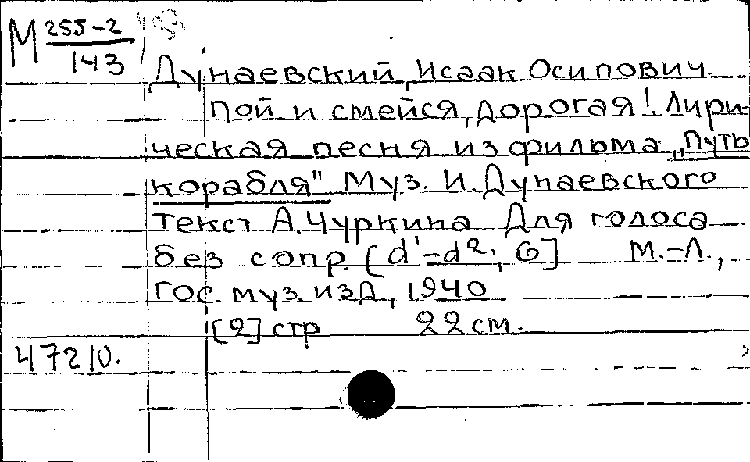 М 255-2
143
Дунаевский, Исаак Осипович
Пой и смейся, дорогая! Лири-
ческая песня из фильма „Путь
корабля" Муз. И. Дунаевского
Текст А. Чуркина Для голоса
без сопр. [d'-d²; G] М.-Л.,
Гос. муз. изд, 1940
[2] стр 22 см.
472/0.